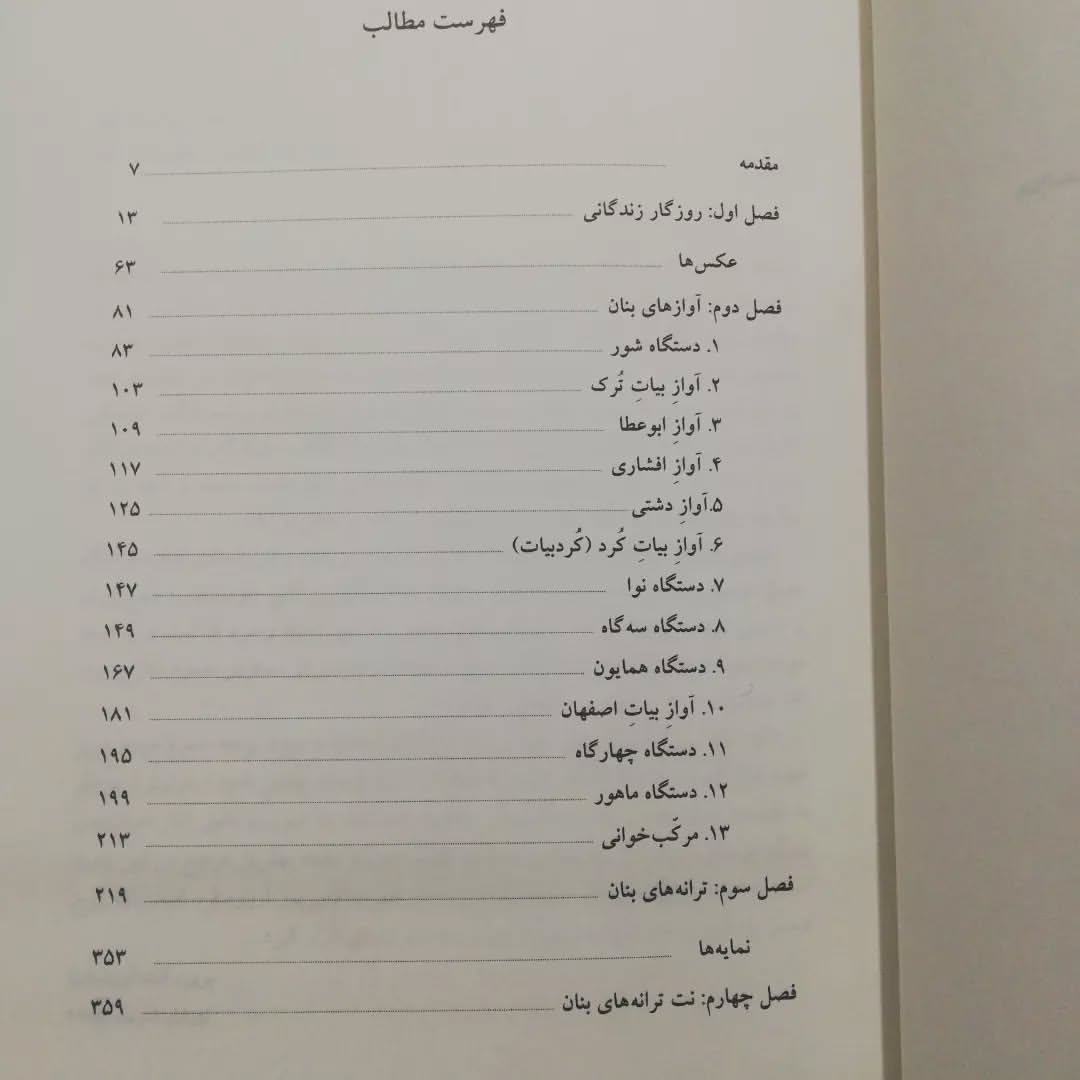 فهرست مطالب
مقدمه ۷
فصل اول: روزگار زندگانی ۱۳
عکس‌ها ۶۳
فصل دوم: آوازهای بنان ۸۱
۱. دستگاه شور ۸۳
۲. آوازِ بیاتِ تُرک ۱۰۳
۳. آوازِ ابوعطا ۱۰۹
۴. آوازِ افشاری ۱۱۷
۵.آوازِ دشتی ۱۲۵
۶. آوازِ بیاتِ کُرد (کُردبیات) ۱۴۵
۷. دستگاه نوا ۱۴۷
۸. دستگاه سه‌گاه ۱۴۹
۹. دستگاه همایون ۱۶۷
۱۰. آوازِ بیاتِ اصفهان ۱۸۱
۱۱. دستگاه چهارگاه ۱۹۵
۱۲. دستگاه ماهور ۱۹۹
۱۳. مرکّب‌خوانی ۲۱۳
فصل سوم: ترانه‌های بنان ۲۱۹
نمایه‌ها ۳۵۳
فصل چهارم: نت ترانه‌های بنان ۳۵۹